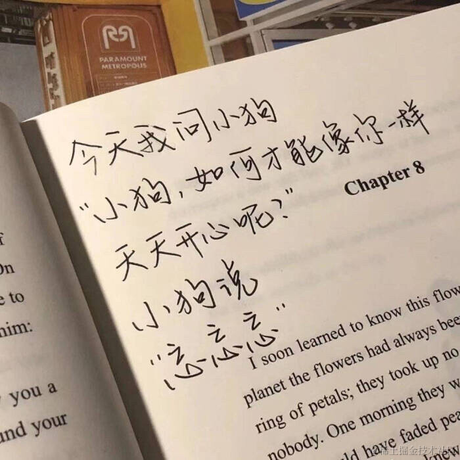 PARAMOUNT
METROPOLIS
今天我问小狗
“小狗,如何才能像你一样
天天开心呢?”
小狗说
“忘忘忘”
Chapter 8
I soon learned to know this flow
planet the flowers had always bee
ring of petals; they took up no
nobody. One morning they w
ld have faded peac
new
f
On
e to
him:
you a
und your
@稀土掘金技术社区